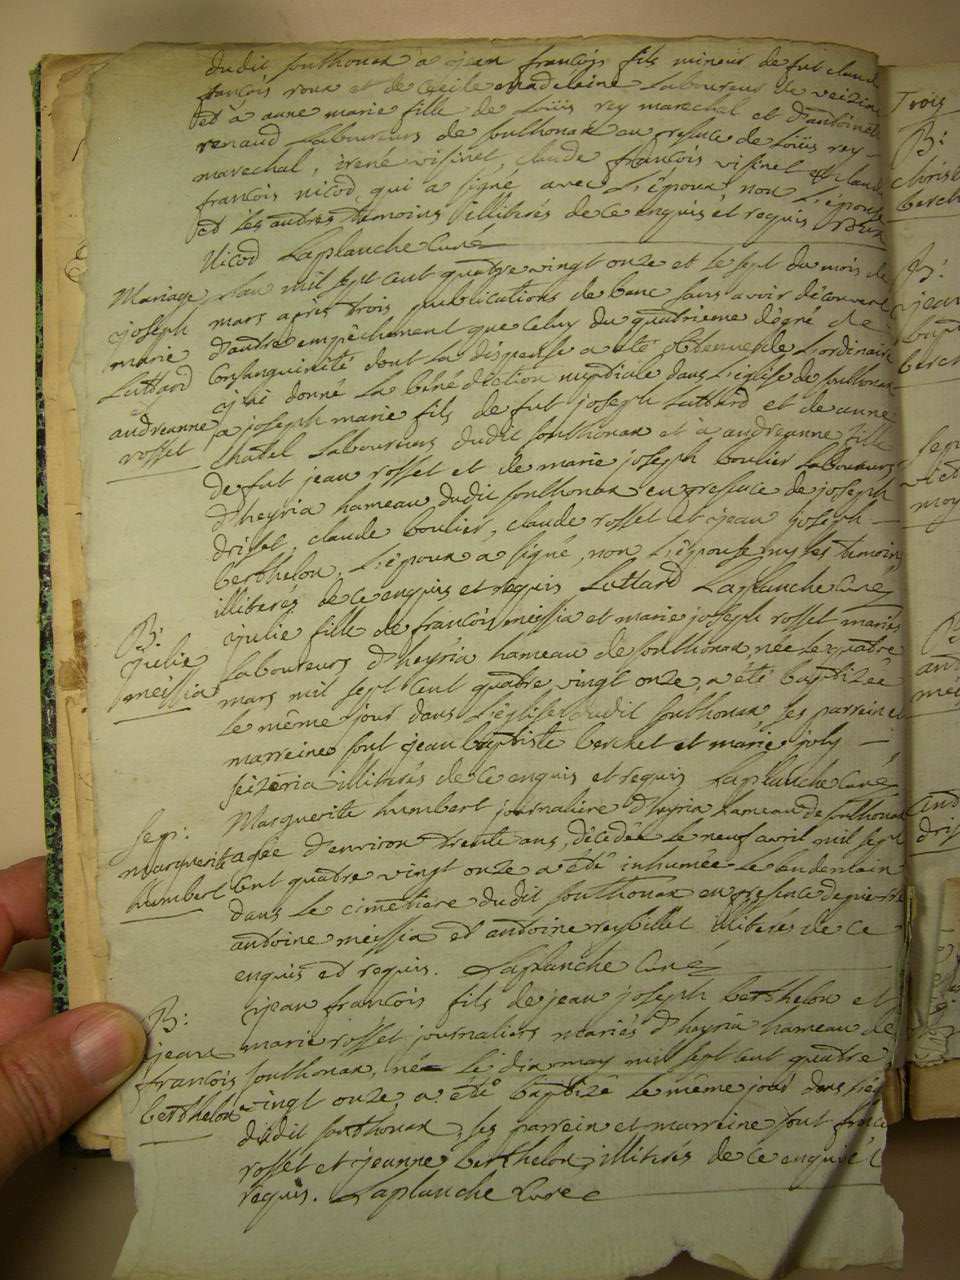 dudit southonax à jean françois fils mineur de fut claude
françois roux et de Cécile madelaine Laboureurs de veizia
et à anne marie fille de Loüis rey marechal et d'antoinette
renaud Laboureurs de southonax en presence de Loüis rey
marechal, irené visinet, claude françois visinet et claude
françois nicod, qui a signé avec L'époux, non L'épouse
et Les autres temoins illiterés de ce enquis et requis Roux
Nicod Laplanche Curé
Mariage
joseph
marie
Luttard
andreanne
rosset
L'an mil sept cent quatre vingt onze et le sept du mois de
mars après trois publications de banc sans avoir découvert
d'autre empêchement que celuy du quatrieme dégré de
Consanguinité dont La dispense a été obtenue de L'ordinaire
j'ai donné La bénédiction nuptiale dans L'église de southonax
a joseph marie fils de fut joseph Luttard et de anne
Chatel Laboureurs dudit southonax et a andreanne fille
de fut jean rosset et de marie joseph boulier Laboureurs
d'heyria hameau dudit southonax en presence de joseph
driset, claude boulier, claude rosset et jean joseph
berthelon, L'époux a signé, non L'épouse ny les temoins
illiterés de ce enquis et requis Luttard Laplanche Curé
B:
julie
meissia
julie fille de françois meissia et marie joseph rosset mariés
Laboureurs d'heyria hameau de southonax, née Le quatre
mars mil sept cent quatre vingt onze, a été baptizée
Le même jour dans L'église dudit southonax ses parrein et
marreine sont jean baptiste berchet et marie joly
seizeria illiterés de ce enquis et requis Laplanche Curé
Sep:
marguerite
humbert
Marguerite humbert journaliere d'heyria hameau de southonax
agée d'environ trente ans, décédée Le neuf avril mil sept
Cent quatre vingt onze a été inhumée Le Lendemain
dans Le cimetière dudit southonax en presence de pierre
antoine meissia et antoine reybillet illiterés de ce
enquis et requis. Laplanche Curé
B:
jean
francois
berthelon
jean françois fils de jean joseph berthelon et
marie rosset journaliers mariés d'heyria hameau de
southonax, né Le dix may mil sept cent quatre
vingt onze, a été baptizé Le même jour dans
dudit southonax, ses parrein et marreine sont
rosset et jeanne berthelon, illiterés de ce enquis et
requis. Laplanche Curé
Trois
B:
berch
B:
jean
bap
berch
Sep
moy
B
and
mei